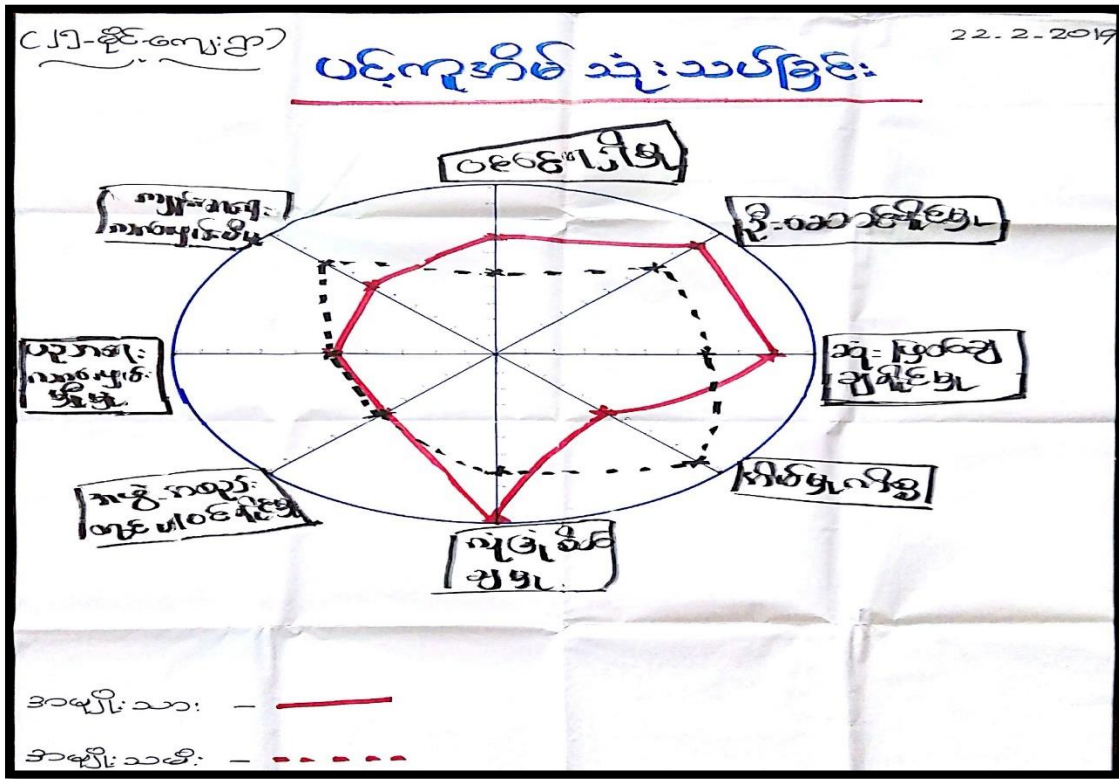 (၂၅-မိုင်-ကျေးရွာ)
22-2-2019
ပင့်ကူအိမ် သုံးသပ်ခြင်း
ဝင်ငွေရရှိမှု
ဦးဆောင်နိုင်မှု
ဆုံးဖြတ်ချက်
ချနိုင်မှု
အိမ်မှုကိစ္စ
လုံခြုံစိတ်
ချမှု
အဖွဲ့အစည်း
တွင် ပါဝင်နိုင်မှု
ပညာရေး
ကျန်းမာရေး
အမျိုးသား -
အမျိုးသမီး -